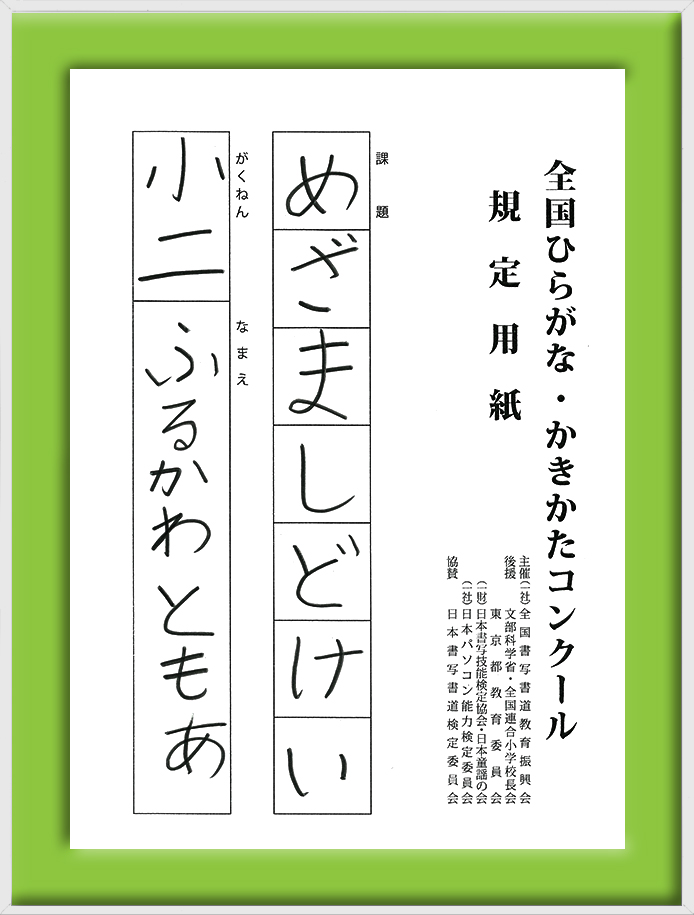 全国ひらがな・かきかたコンクール
規定用紙
主催（一社）全国書写書道教育振興会
後援 文部科学省・全国連合小学校長会
東京都教育委員会
（一財）日本書写技能検定協会・日本童謡の会
（一社）日本パソコン能力検定委員会
協賛 日本書写書道検定委員会
課題
めざましどけい
がくねん
小二
なまえ
ふるかわともあ